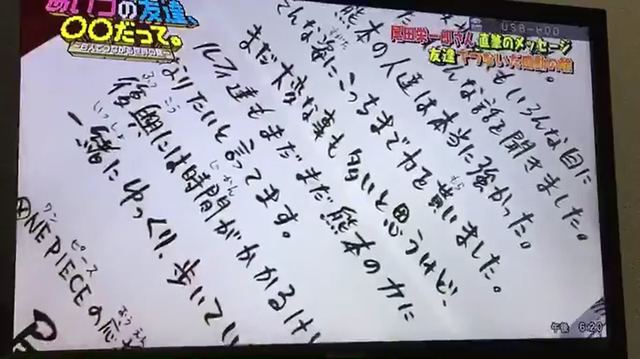 あいつの友達、
〇〇だって。
USB-HDD
尾田栄一郎さん 直筆のメッセージ
友達でつないだ感動の輪
もいろんな目に
んな話を聞きました。
熊本の人達は本当に強かった。
そんな姿にこっちまで力を貰いました。
まだ大変な事も多いと思うけど、
ルフィ達もまだまだ熊本の力に
なりたいと言ってます。
復興には時間がかかるけ
一緒にゆっくり、歩いてい
ONE PIECEの応
午後 6:20